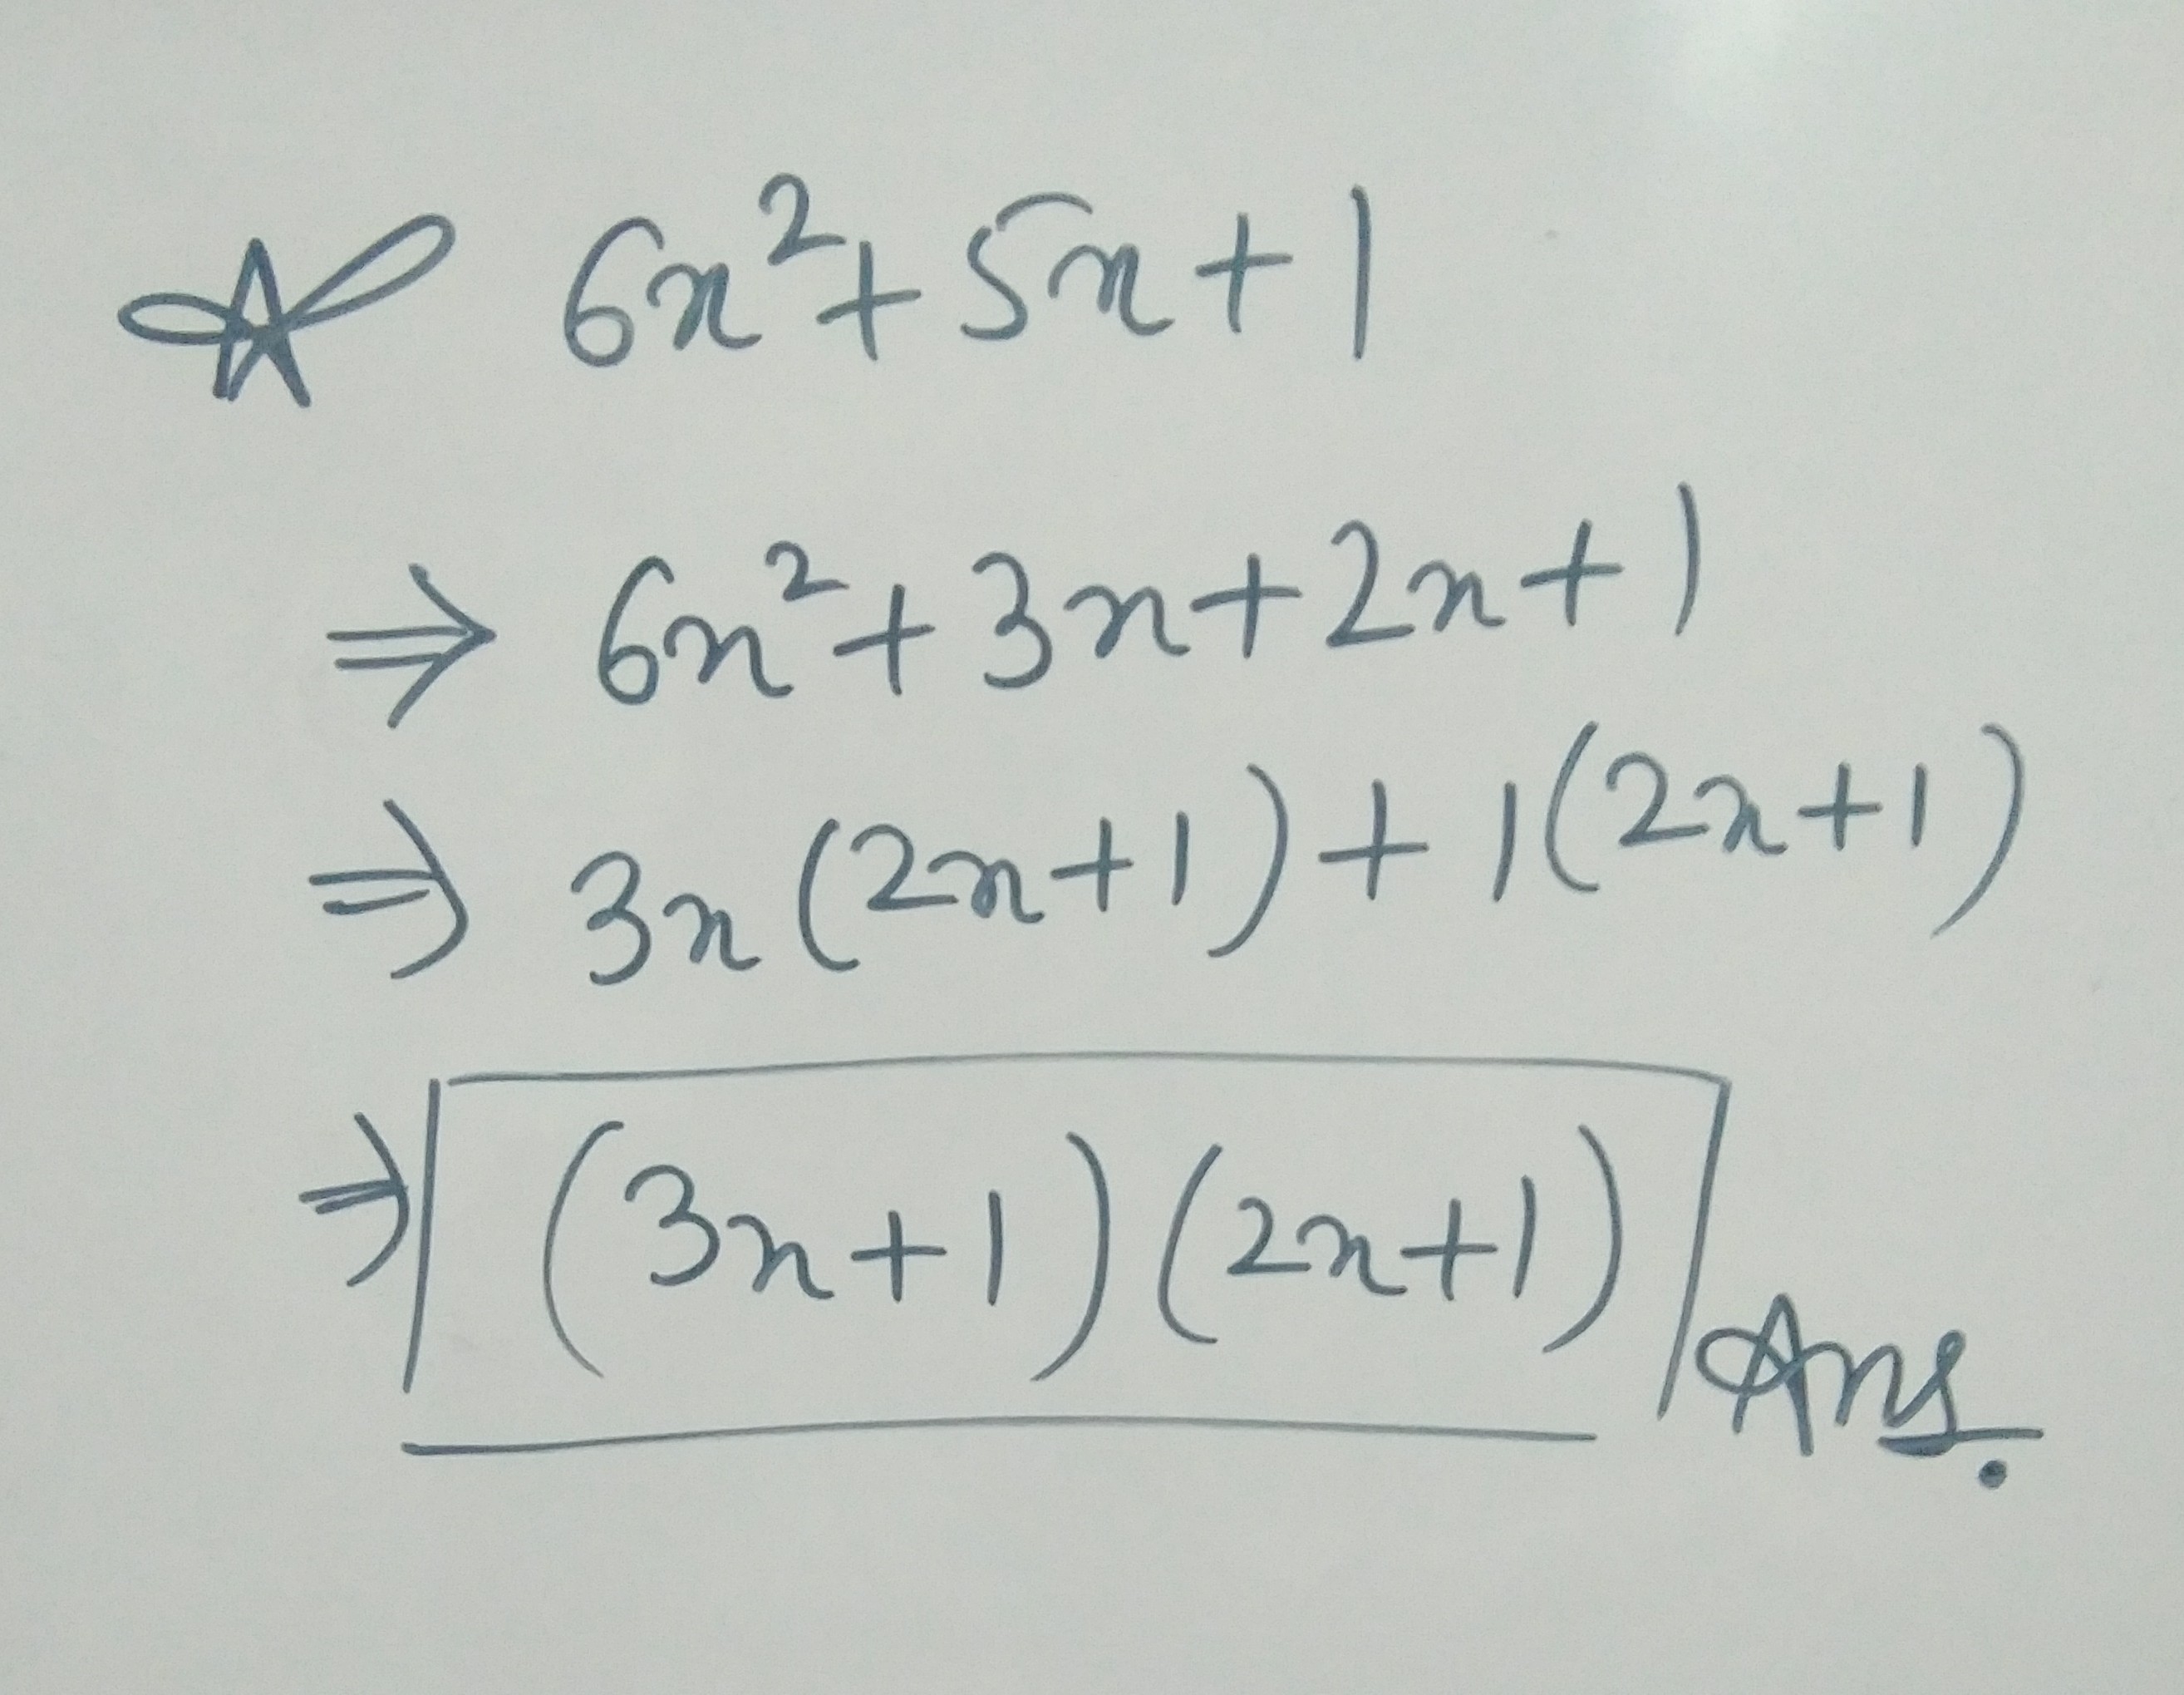 ☆ 6x²+5x+1
⇒ 6x²+3x+2x+1
⇒ 3x(2x+1)+1(2x+1)
⇒ (3x+1)(2x+1) Ans.